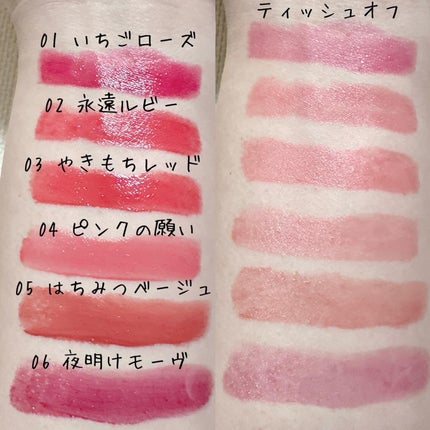 ティッシュオフ
01 いちごローズ
02 永遠ルビー
03 やきもちレッド
04 ピンクの願い
05 はちみつベージュ
06 夜明けモーヴ